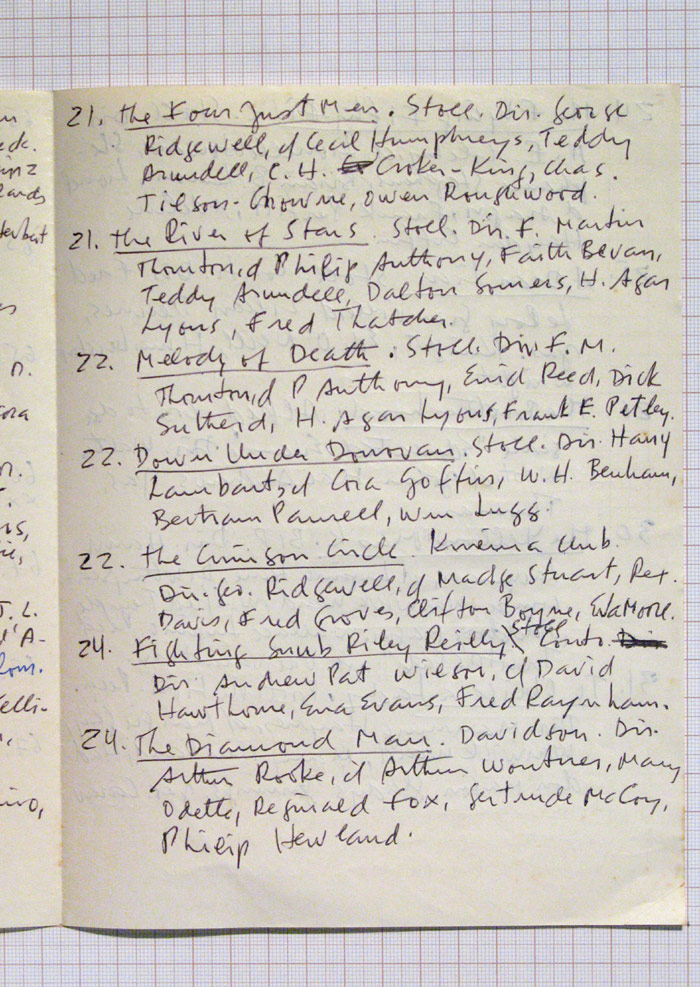 21. The Four Just Men. Stoll. Dir. George
Ridgewell, c/ Cecil Humphreys, Teddy
Arundell, C. H. Croker-King, Chas.
Tilson-Chowne, Owen Roughwood.
21. The River of Stars. Stoll. Dir. F. Martin
Thornton, c/ Philip Anthony, Faith Bevan,
Teddy Arundell, Dalton Somers, H. Agar
Lyons, Fred Thatcher.
22. Melody of Death. Stoll. Dir. F. M.
Thornton, c/ P Anthony, Enid Reed, Dick
Sutherd, H. Agar Lyons, Frank E. Petley.
22. Down Under Donovan. Stoll. Dir. Harry
Lambart, c/ Cora Goffin, W. H. Benham,
Bertram Parnell, Wm Lugg.
22. The Crimson Circle. Kinema Club.
Dir. Geo. Ridgewell, c/ Madge Stuart, Rex.
Davis, Fred Groves, Clifton Boyne, Eva Moore.
24. Fighting Snub Riley Reilly Stoll Conto.
Dir. Andrew Pat Wilson, c/ David
Hawthorne, Ena Evans, Fred Raynham.
24. The Diamond Man. Davidson. Dir.
Arthur Rooke, c/ Arthur Wontner, Mary
Odette, Reginald Fox, Gertrude McCoy,
Philip Hewland.